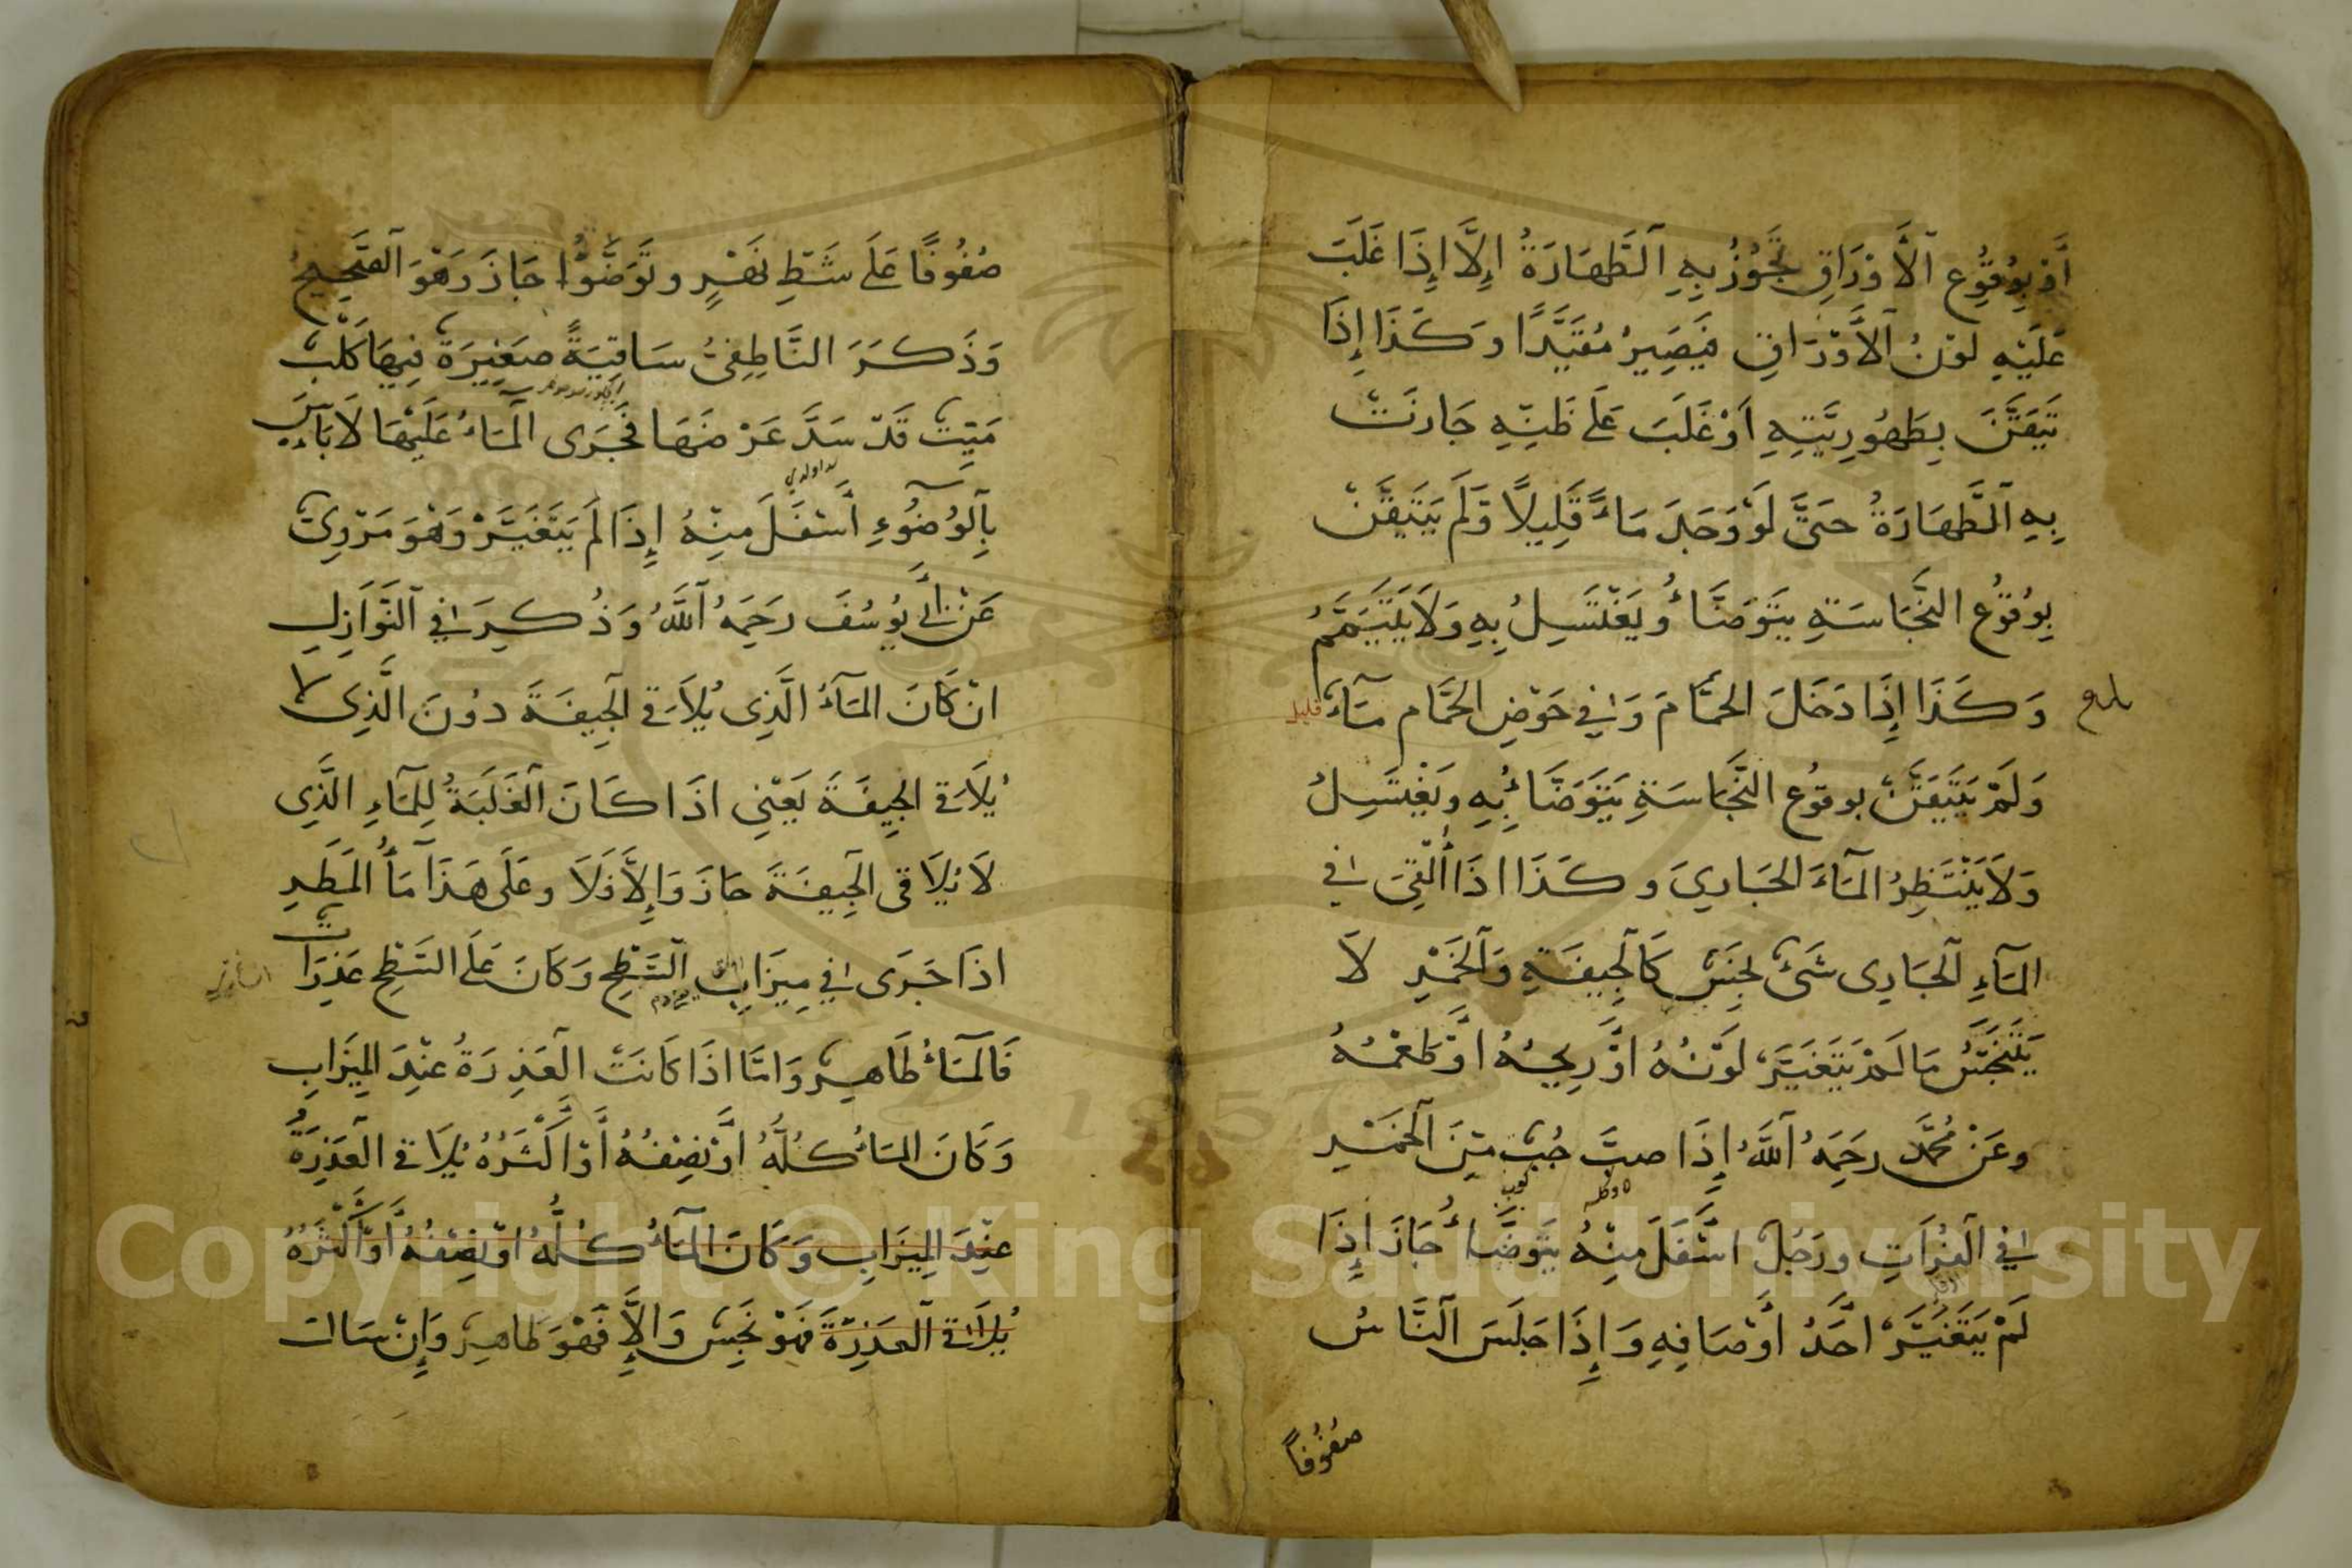 أَوْ بِوُقُوعِ ٱلْأَوْرَاقِ تَجُوزُ بِهِ ٱلطَّهَارَةُ إِلَّا إِذَا غَلَبَ
عَلَيْهِ لَوْنُ ٱلْأَوْرَاقِ فَيَصِيرُ مُقَيَّدًا وَكَذَا إِذَا
تَيَقَّنَ بِطَهُورِيَّتِهِ أَوْ غَلَبَ عَلَى ظَنِّهِ جَازَتْ
بِهِ ٱلطَّهَارَةُ حَتَّى لَوْ وَجَدَ مَاءً قَلِيلًا وَلَمْ يَتَيَقَّنْ
بِوُقُوعِ النَّجَاسَةِ يَتَوَضَّأُ وَيَغْتَسِلُ بِهِ وَلَا يَتَيَمَّمُ
وَكَذَا إِذَا دَخَلَ الْحَمَّامَ وَفِي حَوْضِ الْحَمَّامِ مَآءٌ قليل
وَلَمْ يَتَيَقَّنْ بِوُقُوعِ النَّجَاسَةِ يَتَوَضَّأُ بِهِ وَيَغْتَسِلُ
وَلَا يَنْتَظِرُ الْمَآءَ الْجَارِيَ وَكَذَا اذَا أُلْقِيَ فِي
الْمَآءِ ٱلْجَارِى شَىْءٌ نَجِسٌ كَٱلْجِيفَةِ وَٱلْخَمْرِ لَا
يَتَنَجَّسُ مَا لَمْ يَتَغَيَّرْ لَوْنُهُ اوْ رِيحُهُ اوْ طَعْمُهُ
وَعَنْ مُحَمَّدٍ رَحِمَهُ ٱللَّهُ إِذَا صبَّ حُبٌّ مِنَ ٱلْخَمْرِ
فِي ٱلْفُرَاتِ وَرَجُلٌ اسْفَلَ مِنْهُ يَتَوَضَّأُ جَازَ إِذَا
لَمْ يَتَغَيَّرْ احَدُ أَوْصَافِهِ وَإِذَا جَلَسَ ٱلنَّاسُ
صُفُوفًا
صُفُوفًا عَلَى شَطِّ نَهْرٍ وَتَوَضَّؤُا جَازَ وَهُوَ ٱلصَّحِيحُ
وَذَكَرَ النَّاطِفِىُّ سَاقِيَةٌ صَغِيرَةٌ فِيهَا كَلْبٌ
مَيِّتٌ قَدْ سَدَّ عَرْضَهَا فَجَرَى الْمَآءُ عَلَيْهَا لَا بَاْسَ
بِٱلْوُضُوءِ أَسْفَلَ مِنْهُ إِذَا لَمْ يَتَغَيَّرْ وَهُوَ مَرْوِىٌّ
عَنْ أَبِي يُوسُفَ رَحِمَهُ ٱللَّهُ وَذُكِرَ فِي ٱلنَّوَازِلِ
انْ كَانَ الْمَآءُ الَّذِى يُلَاقِي الْجِيفَةَ دُونَ الَّذِى لَا
يُلَاقِي الْجِيفَةَ يَعْنِى اذَا كَانَ ٱلْغَلَبَةُ لِلْمَآءِ الَّذِى
لَا يُلَاقِى الْجِيفَةَ جَازَ وَإِلَّا فَلَا وَعَلَى هَذَا مَآءُ الْمَطَرِ
اذَا جَرَى فِي مِيزَابِ السَّطْحِ وَكَانَ عَلَى السَّطْحِ عَذِرَاتٌ
فَالْمَآءُ طَاهِرٌ وَامَّا اذَا كَانَتْ الْعَذِرَةُ عِنْدَ الْمِيزَابِ
وَكَانَ الْمَآءُ كُلُّهُ اوْ نِصْفُهُ أَوْ أَكْثَرُهُ يُلَاقِي الْعَذِرَةَ
عِنْدَ الْمِيزَابِ وَكَانَ الْمَآءُ كُلُّهُ اوْ نِصْفُهُ أَوْ أَكْثَرُهُ
يُلَاقِي ٱلْعَذِرَةَ فَهُوَ نَجِسٌ وَإِلَّا فَهُوَ طَاهِرٌ وَإِنْ سَالَ
Copyright © King Saud University
1957